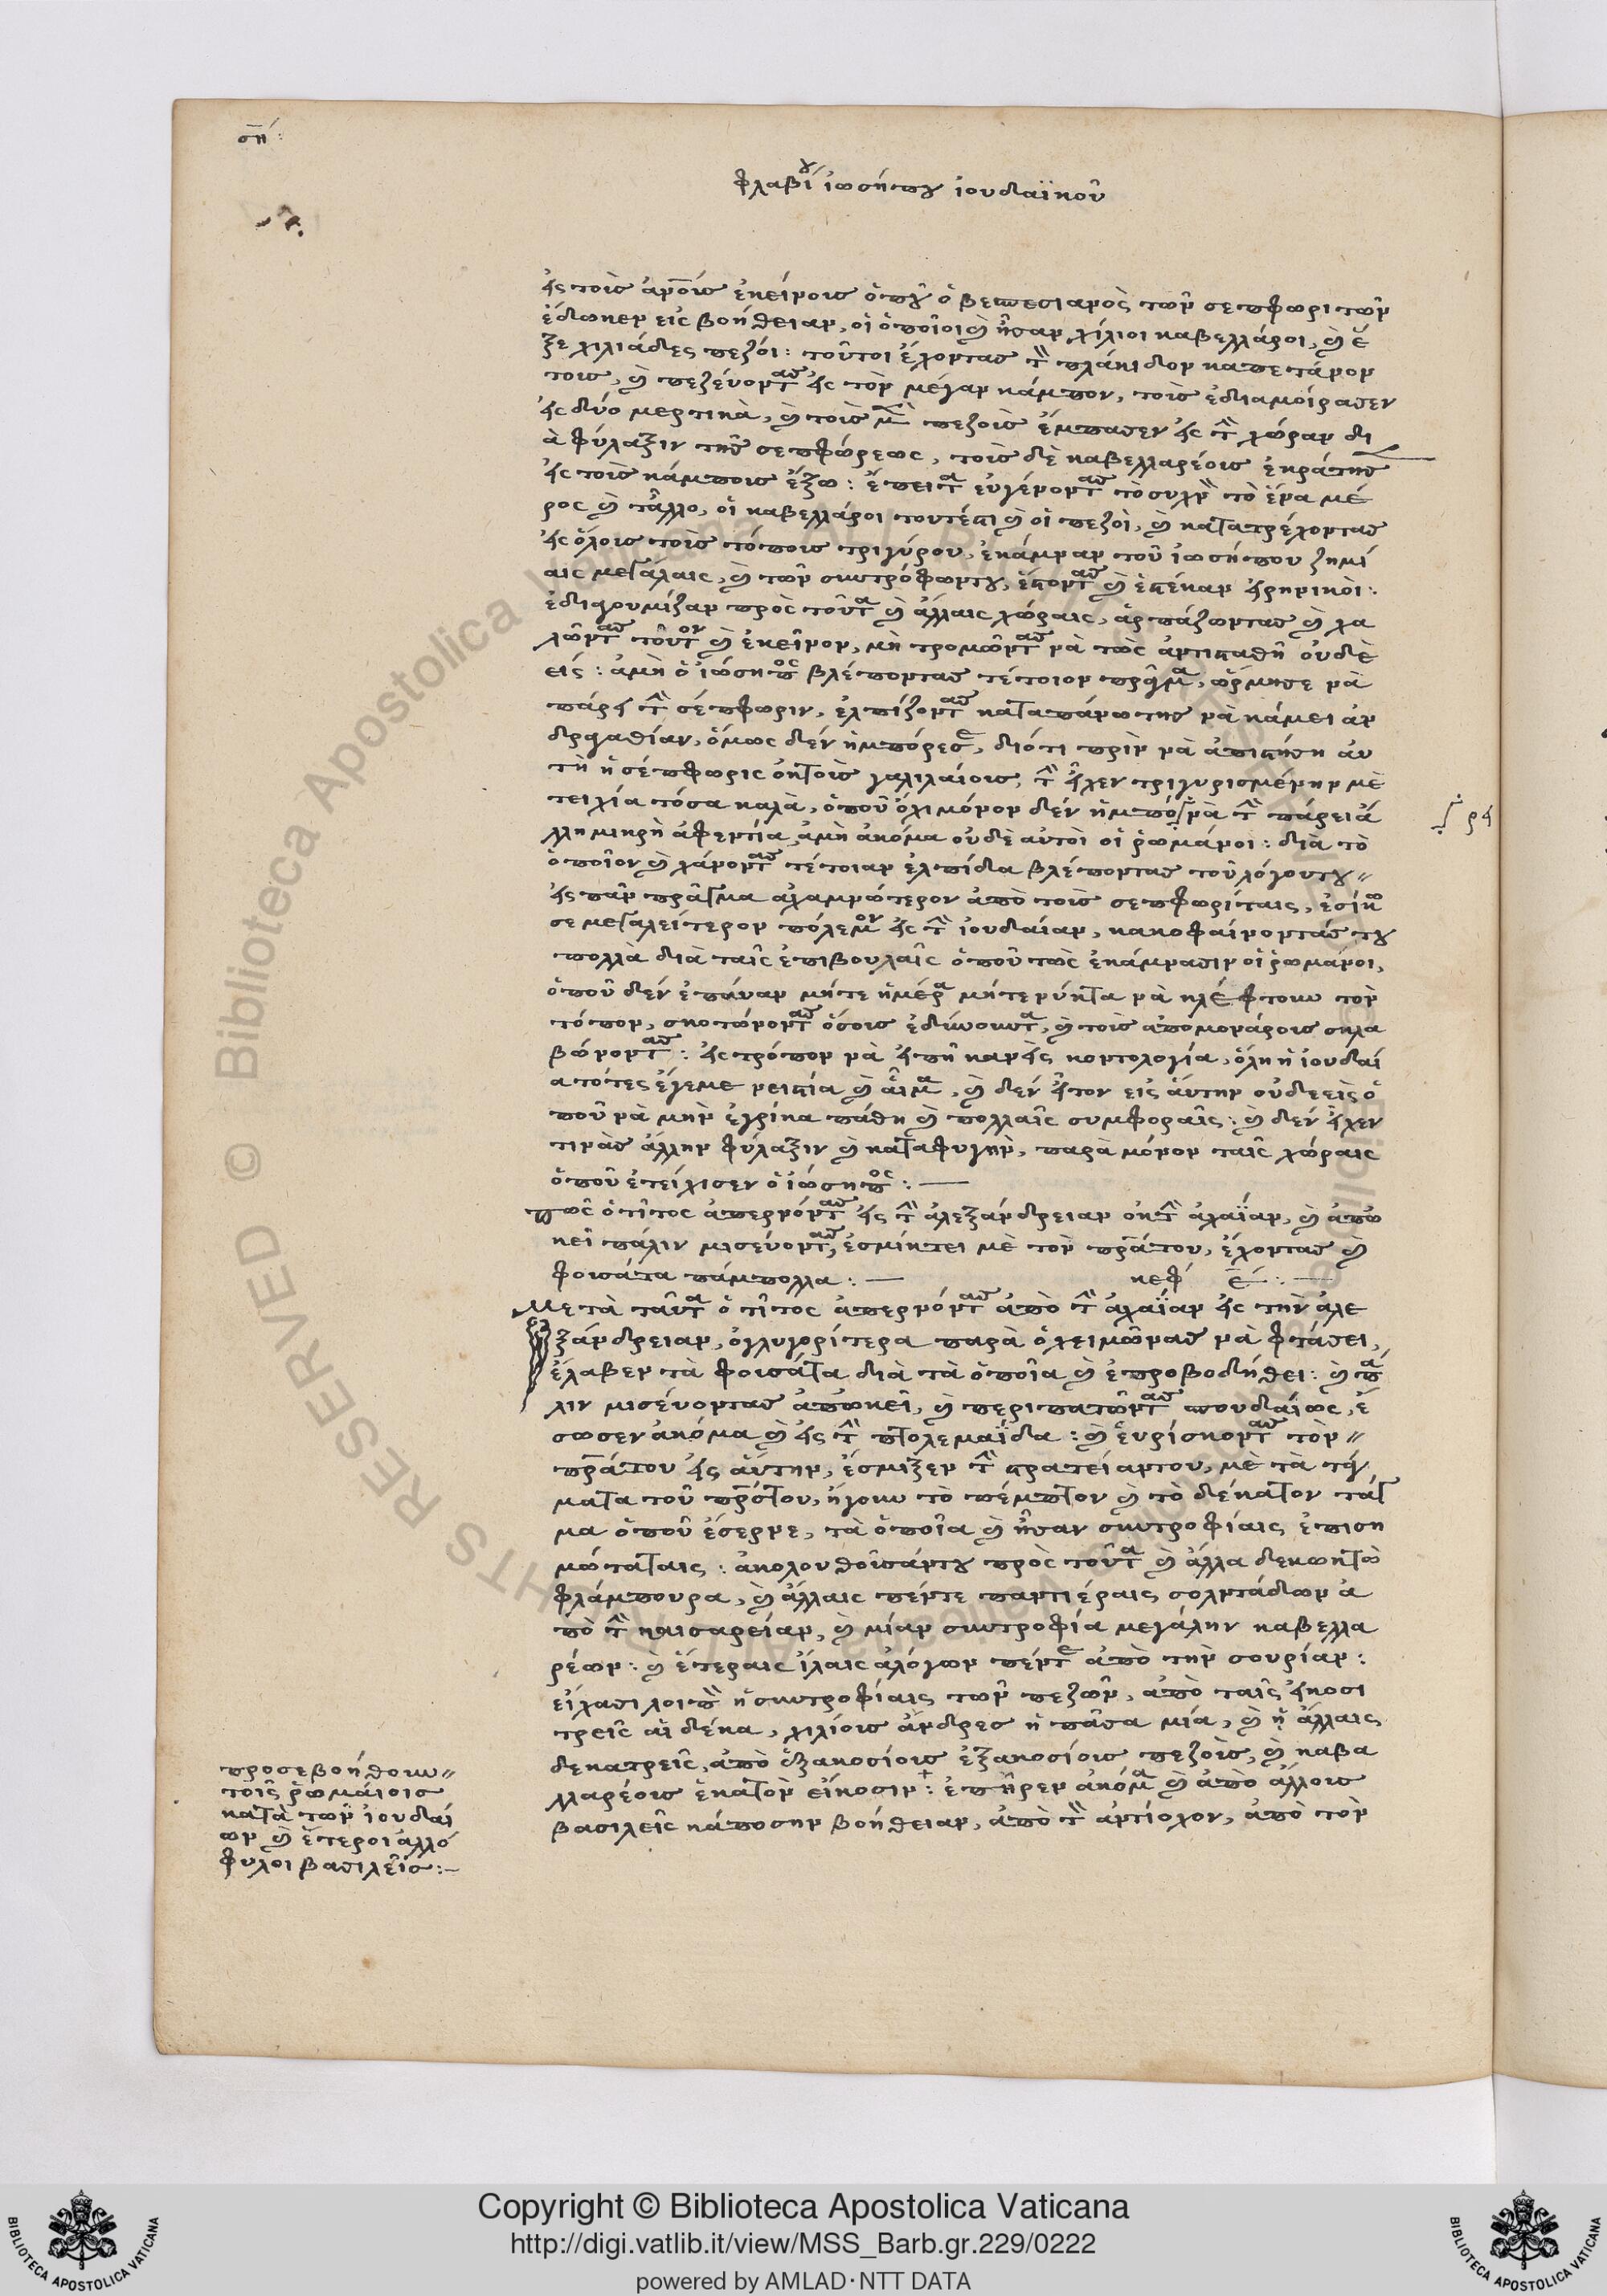 ση:
φλαβίου ἰωσήπου ἰουδαϊκοῦ
εἰς τοὺς ἀνο͂υς ἐκείνους ὁποῦ ὁ βεσπεσιανὸς τῶν σεπφωριτῶν
ἔδωκεν εἰς βοήθειαν, οἱ ὁποῖοι καὶ ἦσαν χίλιοι καβελλάροι, καὶ ἕ
ξε χιλιάδες πεζόι: τοῦτοι ἔχοντας τὸν πλάκιδον καπετάνον
τους, καὶ πεζένοντας εἰς τὸν μέγαν κάμπον, τοὺς ἐδιαμοίρασεν
εἰς δύο μερτικὰ, καὶ τοὺς μὲν πεζοὺς ἔμπασεν εἰς τὴν χώραν δι
ὰ φύλαξιν τῆς σεπφώρεως, τοὺς δὲ καβελλαρέους ἐκράτησ
εἰς τοὺς κάμπους ἔξω: ἔπειτα εὐγένοντας τὸ συχνὸν τὸ ἕνα μέ
ρος καὶ τἄλλο, οἱ καβελλάροι τουτέστι καὶ οἱ πεζοὶ, καὶ κατατρέχοντας
εἰς ὅλους τοὺς τόπους τριγύρου, ἐκάμναν τοῦ ἰωσήπου ζημί
αις μεγάλαις, καὶ τῶν συντρόφωντου, ἔστοντας καὶ ἐστέκαν εἰρηνικοὶ:
ἐδιαγουμίζαν πρὸς τοῦτα καὶ ἄλλαις χώραις, ἁρπάζωντας καὶ χα
λῶντας τοῦτον καὶ ἐκεῖνον, μὴ τρομῶντας νὰ τῶς ἀντισταθῆ οὐδὲ
εἰς: ἀμὴ ὁ ἰώσηπος βλέποντας τέτοιον πρᾶγμα, ὥρμησε νὰ
πάρει τὴν σέπφωριν, ἐλπίζοντας καταπάνωτης νὰ κάμει ἀν
δραγαθίαν, ὅμως δὲν ἠμπόρεσε, διότι πρὶν νὰ ἀπιστήση ἀυ
τὴ ἡ σέπφωρις ὀκτοὺς γαλιλαίους, τὴν εἶχεν τριγυρισμένην μὲ
τειχία τόσα καλὰ, ὁποῦ ὄχι μόνον δὲν ἠμπόρει νὰ τὴν πάρει ἄ
λλη μικρὴ ἀφεντία, ἀμὴ ἀκόμα οὐδὲ αὐτοὶ οἱ ῥωμάνοι: διὰ τὸ
ὁποῖον καὶ χάνοντας τέτοιαν ἐλπίδα βλέποντας τοῦ λόγουτου
εἰς πᾶν πρᾶγμα ἀχαμνότερον ἀπὸ τοὺς σεπφωρίταις, ἐσίκω
σε μεγαλείτερον πόλεμον εἰς τὴν ἰουδαίαν, κακοφαίνοντάς του
πολλὰ διὰ ταῖς ἐπιβουλαῖς ὁποῦ τῶς ἐκάμνασιν οἱ ῥωμάνοι,
ὁποῦ δὲν ἐπάυαν μήτε ἡμέρα μήτε νύκτα νὰ κλέφτουν τὸν
τόπον, σκοτώνοντας ὅσους ἐδίωκουντα, καὶ τοὺς ἀπομονάρους σκλα
βώνοντας: εἰς τρόπον νὰ εἰπῆ κανεὶς κοντολογία, ὅλη ἡ ἰουδαί
α τότες ἔγεμε νεκρία καὶ αἷμα, καὶ δὲν εἶτον εἰς ἄυτην οὐδεεὶς ὁ
ποῦ νὰ μὴν ἐγρίκα πάθη καὶ πολλαῖς συμφοραῖς: καὶ δὲν εἶχεν
τινὰς ἄλλην φύλαξιν καὶ καταφυγὴν, παρὰ μόνον ταῖς χώραις
ὁποῦ ἐτείχισεν ὁ ἰώσηπος:—
πῶς ὁ τῖτος ἀπερνόντας εἰς τὴν ἀλεξάνδρειαν ὀκ τὴν ἀχαΐαν, καὶ ἀπω
κεῖ πάλιν μισεύοντας, ἐσμίκτει μὲ τὸν πρᾶτον, ἔχοντας καὶ
φουσάτα πάμπολλα:— κεφ έ:—
Μετὰ ταῦτα ὁ τῖτος ἀπερνόντας ἀπὸ τὴν ἀχαΐαν εἰς τὴν ἀλε
ξάνδρειαν, ὀγλυγορίτερα παρὰ ὁ χειμῶνας νὰ φτάσει,
ἔλαβεν τὰ φουσάτα διὰ τὰ ὁποῖα καὶ ἐπροβοδήθει: καὶ πά
λιν μισέυοντας ἀπωκεῖ, καὶ περιπατῶντας σπουδαίως, ἔ
σωσεν ἀκόμα καὶ εἰς τὴν πτολεμαΐδα: καὶ ἑυρίσκοντας τὸν
πρᾶτου εἰς ἄυτην, ἔσμιξεν τὴν στρατείαντου, μὲ τὰ τάγ
ματα τοῦ πρᾶτου, ἤγουν τὸ πέμπτον καὶ τὸ δέκατον τάγ
μα ὁποῦ ἔσερνε, τὰ ὁποῖα καὶ ἦσαν συντροφίαις ἐπιση
μώταταις: ἀκολουθοῦσάντου πρὸς τοῦτα καὶ ἄλλα δεκωκτὼ
φλάμπουρα, καὶ ἄλλαις πέντε παντιέραις σολντάδων ἀ
πὸ τὴν καισαρείαν, καὶ μίαν συντροφία μεγάλην καβελλα
ρέων: καὶ ἕτεραις ἴλαις ἀλόγων πέντε ἀπὸ τὴν σουρίαν:
εἴχασι λοιπὸν ἡ συντροφίαις τῶν πεζῶν, ἀπὸ ταῖς εἴκοσι
τρεῖς αἱ δέκα, χιλίους ἄνδρες ἡ πᾶσα μία, καὶ ἡ ἄλλαις
δεκατρεῖς, ἀπὸ ἑξακοσίους ἑξακοσίους πεζοὺς, καὶ καβα
λλαρέους ἑκατὸν εἴκοσιν: ἐπῆρεν ἀκόμα καὶ ἀπὸ ἄλλους
βασιλεῖς κάποσην βοήθειαν, ἀπὸ τὸν ἀντίοχον, ἀπὸ τὸν
προσεβοήθουν
τοῖς ῥωμάιοις
κατὰ τῶν ἰουδαί
ων καὶ ἕτεροι ἀλλό
φυλοι βασιλεῖς:—
Copyright © Biblioteca Apostolica Vaticana
http://digi.vatlib.it/view/MSS_Barb.gr.229/0222
powered by AMLAD·NTT DATA